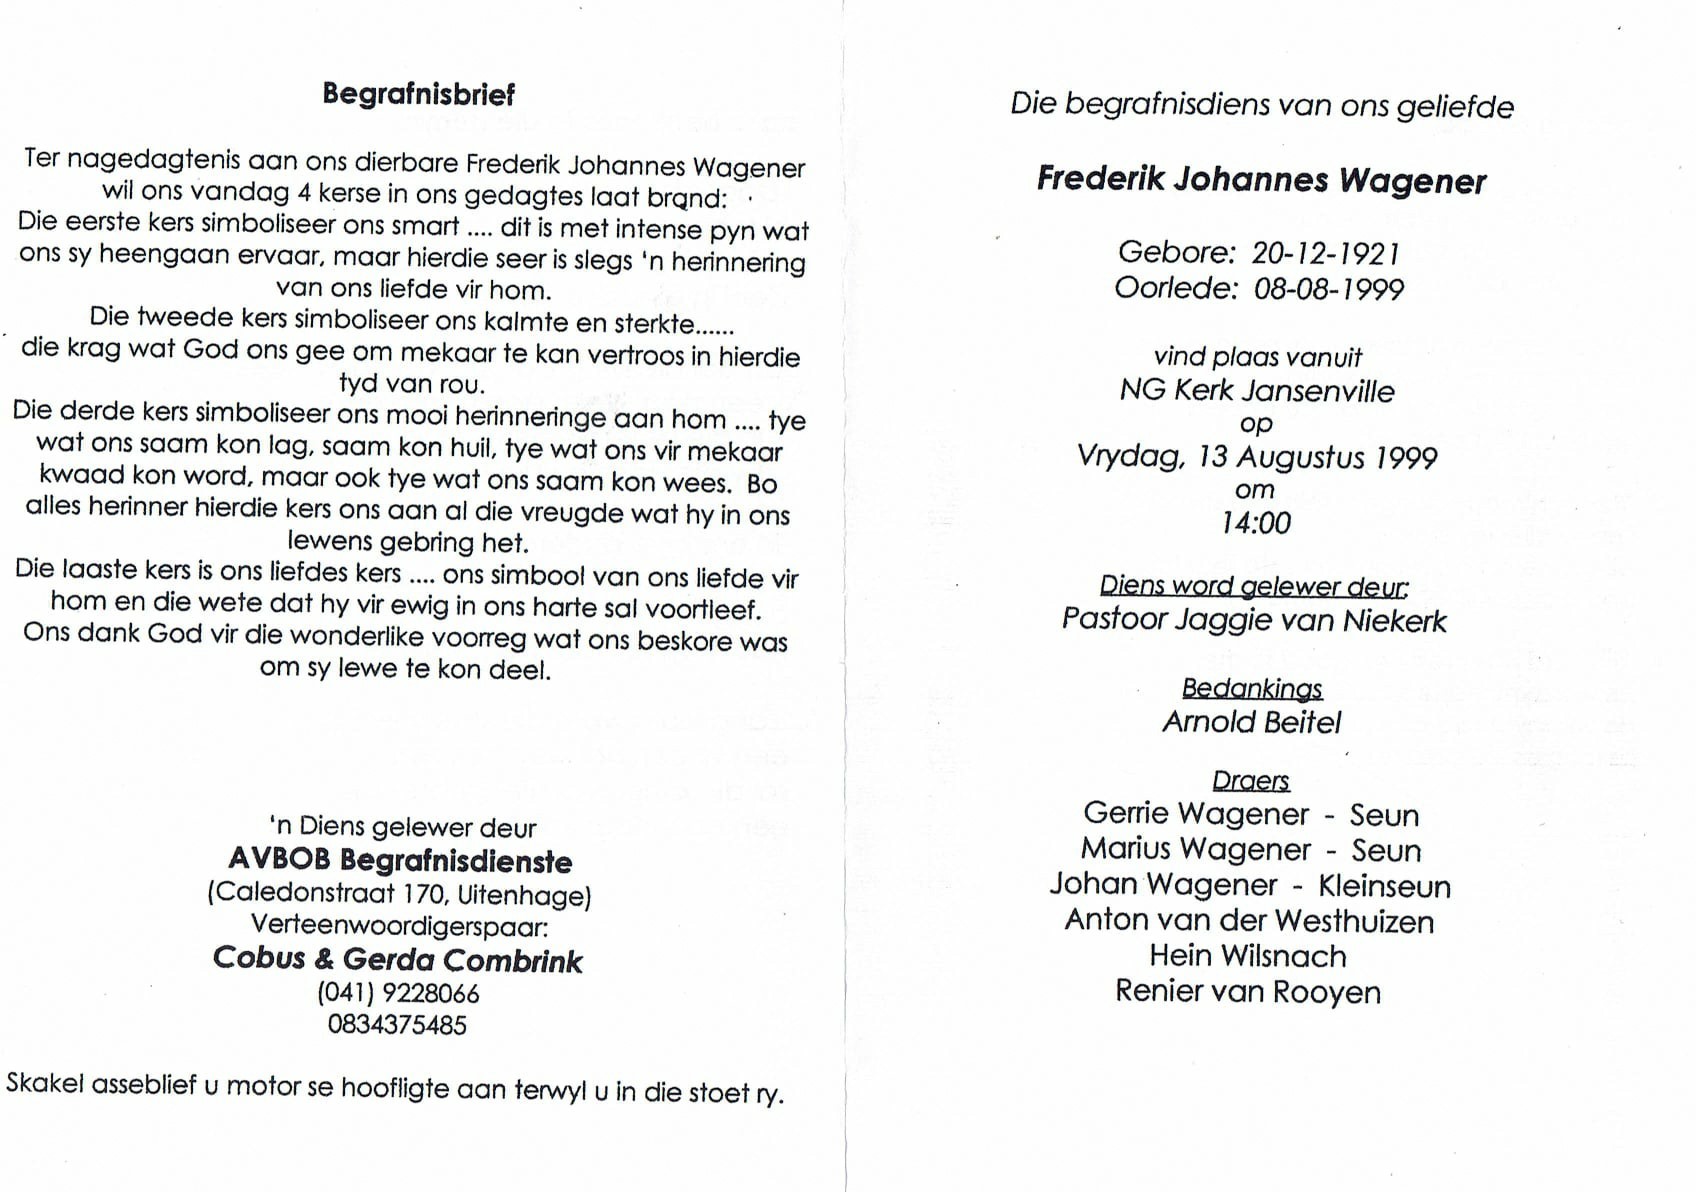 Begrafnisbrief
Ter nagedagtenis aan ons dierbare Frederik Johannes Wagener
wil ons vandag 4 kerse in ons gedagtes laat brand:
Die eerste kers simboliseer ons smart .... dit is met intense pyn wat
ons sy heengaan ervaar, maar hierdie seer is slegs 'n herinnering
van ons liefde vir hom.
Die tweede kers simboliseer ons kalmte en sterkte......
die krag wat God ons gee om mekaar te kan vertroos in hierdie
tyd van rou.
Die derde kers simboliseer ons mooi herinneringe aan hom .... tye
wat ons saam kon lag, saam kon huil, tye wat ons vir mekaar
kwaad kon word, maar ook tye wat ons saam kon wees. Bo
alles herinner hierdie kers ons aan al die vreugde wat hy in ons
lewens gebring het.
Die laaste kers is ons liefdes kers .... ons simbool van ons liefde vir
hom en die wete dat hy vir ewig in ons harte sal voortleef.
Ons dank God vir die wonderlike voorreg wat ons beskore was
om sy lewe te kon deel.
'n Diens gelewer deur
AVBOB Begrafnisdienste
(Caledonstraat 170, Uitenhage)
Verteenwoordigerspaar:
Cobus & Gerda Combrink
(041) 9228066
0834375485
Skakel asseblief u motor se hoofligte aan terwyl u in die stoet ry.
Die begrafnisdiens van ons geliefde
Frederik Johannes Wagener
Gebore: 20-12-1921
Oorlede: 08-08-1999
vind plaas vanuit
NG Kerk Jansenville
op
Vrydag, 13 Augustus 1999
om
14:00
Diens word gelewer deur:
Pastoor Jaggie van Niekerk
Bedankings
Arnold Beitel
Draers
Gerrie Wagener - Seun
Marius Wagener - Seun
Johan Wagener - Kleinseun
Anton van der Westhuizen
Hein Wilsnach
Renier van Rooyen